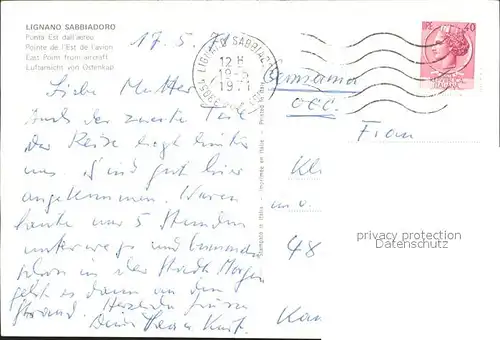 LIGNANO SABBIADORO
Punta Est dall'aereo
Pointe de l'Est de l'avion
East Point from aircraft
Luftansicht von Ostenkap
17.5.71
33054 LIGNANO SABBIADORO
12 H
19.5
1971
IRE 40
Germania
occ.
Frau
Kl
48
Liebe Mutter
Auch der zweite Teil
der Reise liegt hinter
uns. Sind gut hier
angekommen. Waren
heute nur 5 Stunden
unterwegs und
schon in der Stadt. Morgen
geht es dann an den
Strand. Herzliche Grüsse
Dein Kurt
Stampato in Italia - Imprimée en Italie - Printed in Italy
privacy protection
Datenschutz